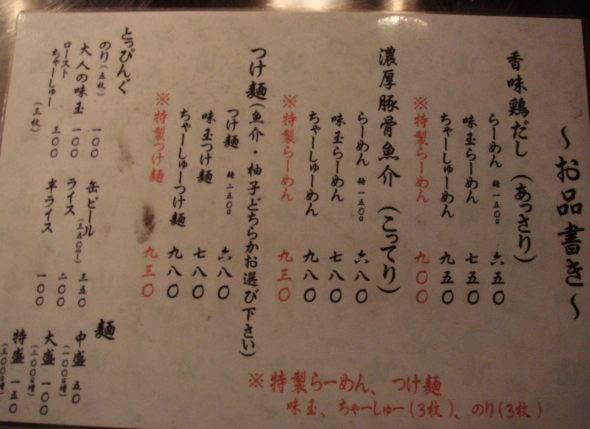 ～お品書き～
香味鶏だし（あっさり）
らーめん 麺一五〇g 六五〇
味玉らーめん 七五〇
ちゃーしゅーめん 九五〇
※特製らーめん 九〇〇
濃厚豚骨魚介（こってり）
らーめん 麺一五〇g 六八〇
味玉らーめん 七八〇
ちゃーしゅーめん 九八〇
※特製らーめん 九三〇
つけ麺（魚介・柚子どちらかお選び下さい）
つけ麺 麺二五〇g 六八〇
味玉つけ麺 七八〇
ちゃーしゅーつけ麺 九八〇
※特製つけ麺 九三〇
とっぴんぐ
のり（五枚） 一〇〇
大人の味玉 一〇〇
ローストちゃーしゅー 三〇〇
（三枚）
缶ビール（三五〇ml） 三五〇
ライス 二〇〇
半ライス 一〇〇
麺
中盛 五〇
（一〇〇g増）
大盛 一〇〇
（二〇〇g増）
特盛 一五〇
（三〇〇g増）
※特製らーめん、つけ麺
味玉、ちゃーしゅー(3枚)、のり(3枚)